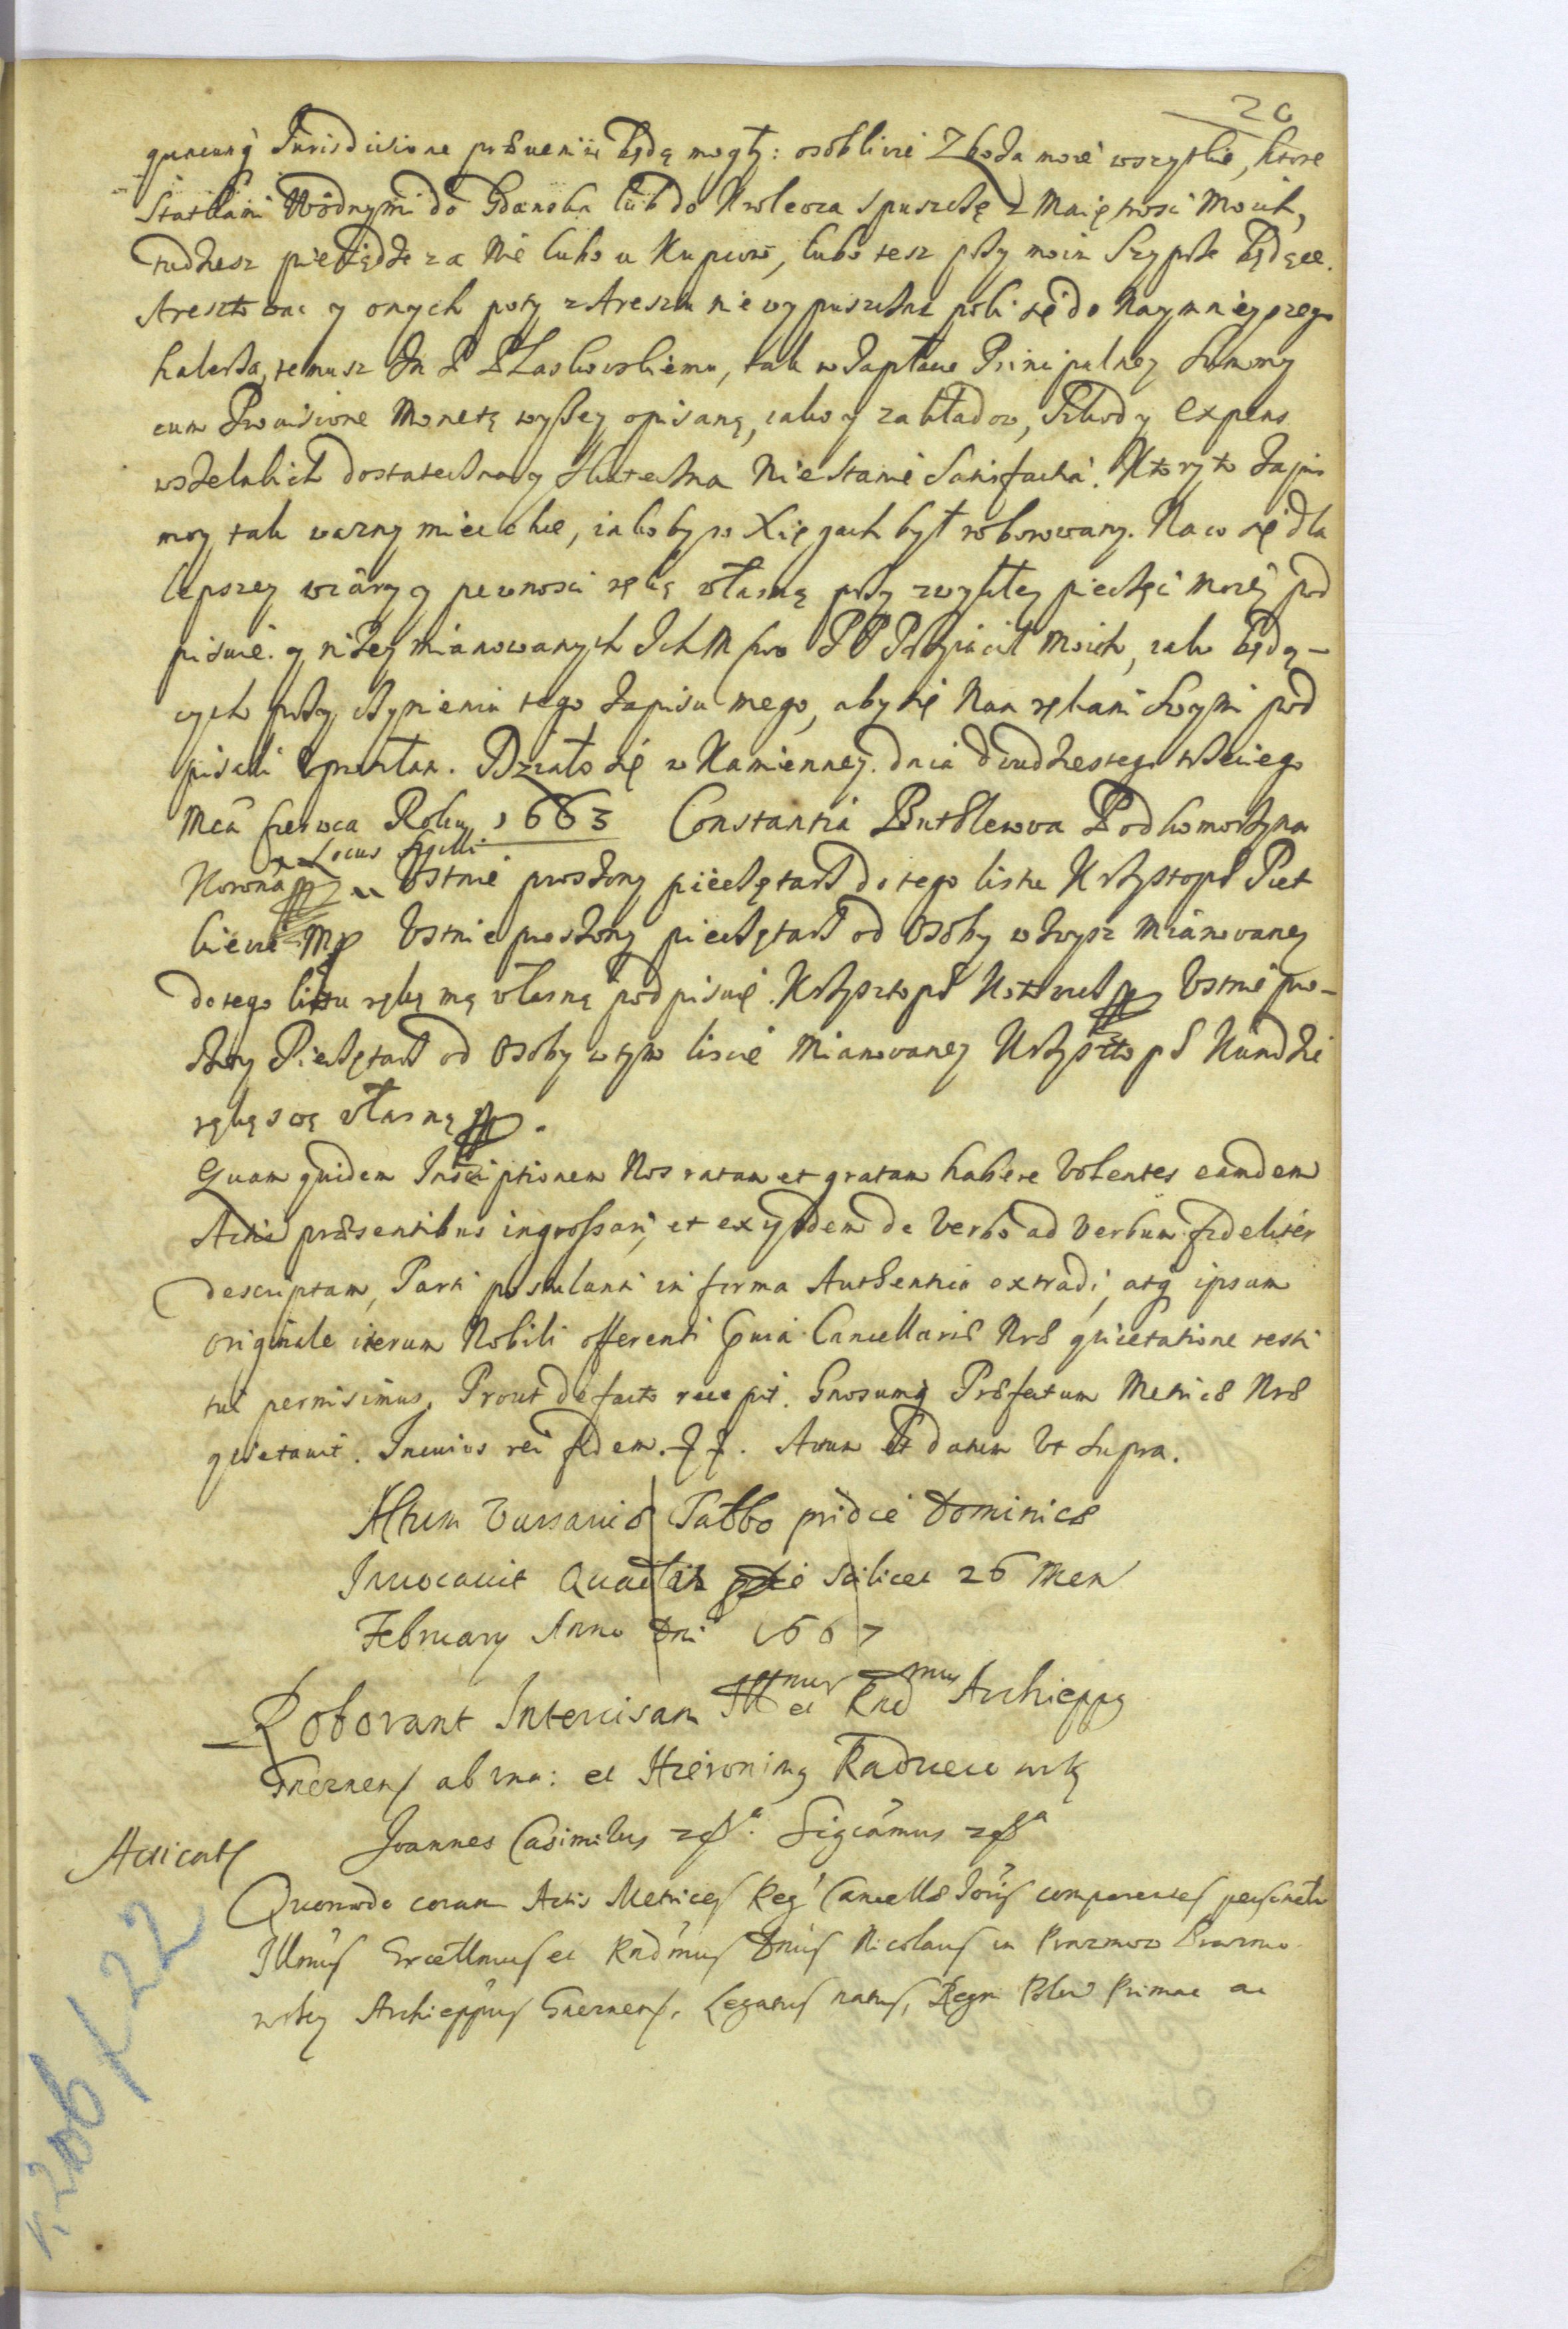 20
quacunq Jurisdictione przeuenire będą mogły: osobliwie Zboża moie wszytkie, ktore
Statkami Wodnymi do Gdanska lub do Krolewca spuszczę z Maiętnosci Moich,
tudziesz pieniądze za Nie lubo u Kupcow, lubo tesz przy moim Szyprze będące
Aresztowac y onych poty z Aresztu nie wypuszczac poki się do Naymnieyszego
halerza, temusz Jm P Laskowskiemu, tak w Zapłacie Principalney Summy
cum Prouisione Monetą wyszey opisaną, iako y zakładow, Szkod y Expens
wszelakich dostateczna y skuteczna Nie stanie Satisfactia. Ktory to Zapis
moy tak wazny miec chce, iakoby w Xięgach był roborowany. Na co się dla
lepszey wiary y pewnosci ręką własną przy zwykłey pieczęci moiey pod
pisuie y niżey mianowanych Ich M PP Przyiacioł Moich, iako będą-
cych przy czynieniu tego Zapisu mego, aby się Nan rękami Swymi pod
pisali uprosiłam. Działo się w Kamienney dnia dwudziestego trzeciego
Mca Czerwca Roku 1663 Constantia Butlerowa Podkomorzyna
Locus Sigilli
Koronna Ustnie proszony pieczętarz do tego listu Krzysztoph Piet
kiewi mp Ustnie proszony pieczętarz od Osoby w zwysz Mianowaney
do tego listu ręką mą własną podpisuię. Krzysztoph Ustnie pro-
szony Pieczętarz od Osoby w tym liscie Mianowaney Krzysztoph Kundzi
ręką swą własną
Quam quidem Inscriptionem Nos ratam et gratam habere Volentes eamdem
Actis præsentibus ingrossari, et ex ijsdem de Verbo ad Verbum fideliter
descriptam, Parti postulanti in forma Authentica extradi, atq ipsum
originale iterum Nobili offerenti Cancellariæ Nræ quietatione resti
tui permisimus, Prout de facto recepit. Præfatum Metricæ Nræ
quietauit. In cuius rei fidem. Actum Et datum Ut Supra.
Actum Varsauiæ Sabbo pridie Dominicæ
Inuocauit Quad scilicet 26 Men
February Anno Dni 1667
Roborant Intercisam Illmus et Rndmus Archieppq
Gneznens ab vna: et Hieronimq Radzieiowskj
Joannes Casimirus Sigcamus
Acticat
Quomodo coram Actis Metrices Reg Cancellæ comparentes personalr
Illmus Excellmus et Rndmus Dnus Nicolaus in Prazmow Prazmo
wsky Archieppus Gneznens, Legatus natus, Regni Poloæ Primas ac
206/22